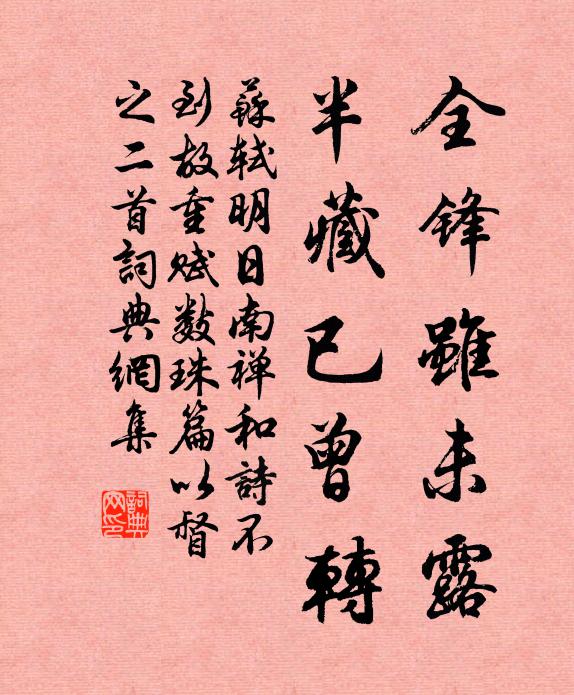 全锋雖未露
半藏已曾轉
蘇軾明日南禅和詩不
到故重赋数珠篇以督
之二首詞典網集
詞典网印